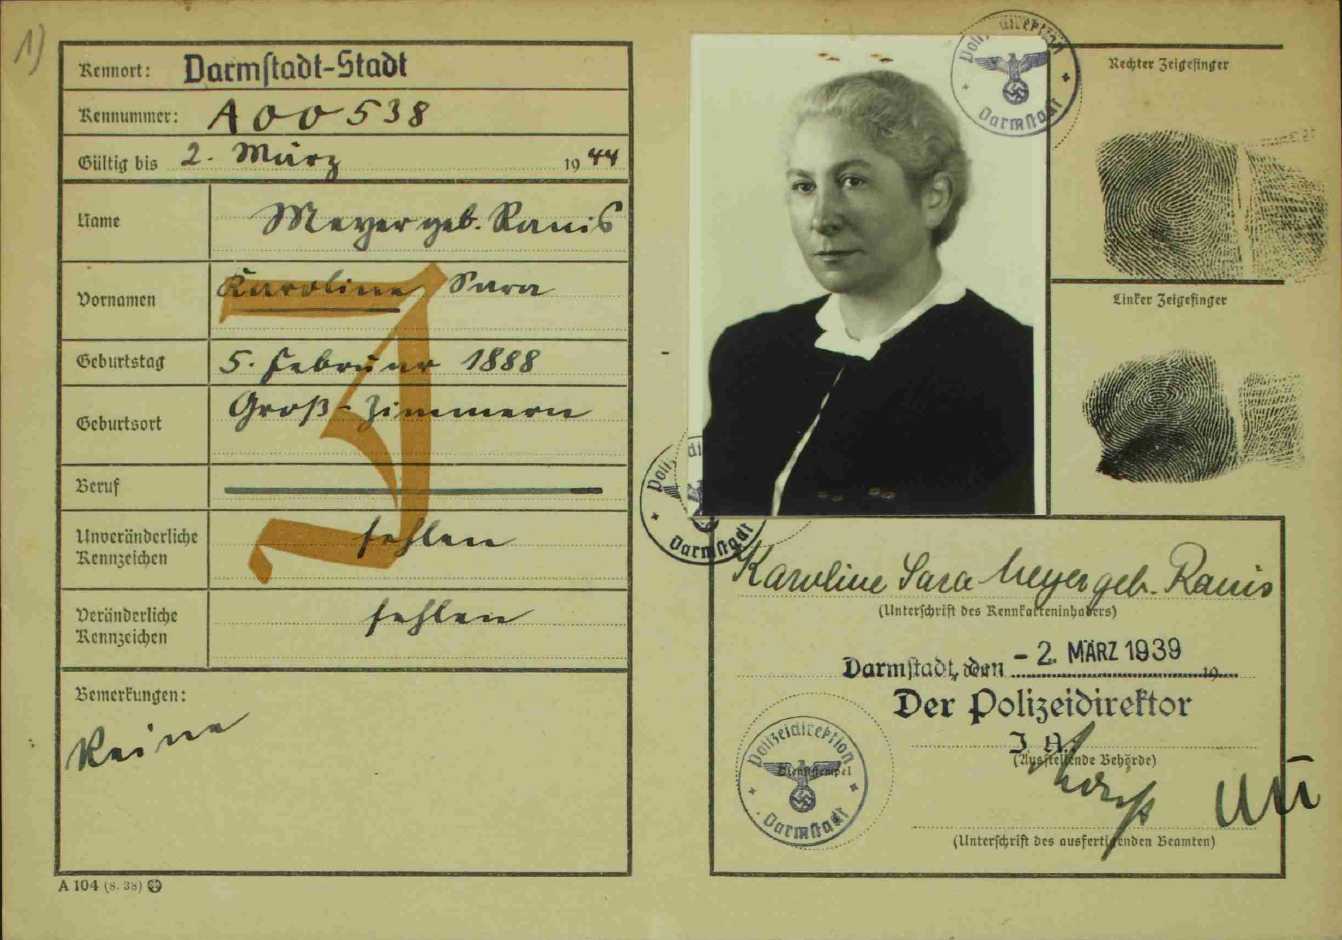 1)
Kennort: Darmstadt-Stadt
Kennummer: A 00538
Gültig bis 2. März 1944
Name Meyer geb. Ranis
Vornamen Karoline Sara
Geburtstag 5. Februar 1888
Geburtsort Groß-Zimmern
Beruf
Unveränderliche
Kennzeichen fehlen
Veränderliche
Kennzeichen fehlen
J
Bemerkungen:
Keine
A 104 (8. 38)
Polizeidirektion
Darmstadt
Rechter Zeigefinger
Linker Zeigefinger
Polizeidirektion
Darmstadt
Karoline Sara Meyer geb. Ranis
(Unterschrift des Kennkarteninhabers)
Darmstadt, den - 2. MÄRZ 1939 19
Der Polizeidirektor
J. A.
(Ausstellende Behörde)
Polizeidirektion
Dienststempel
Darmstadt
(Unterschrift des ausfertigenden Beamten)